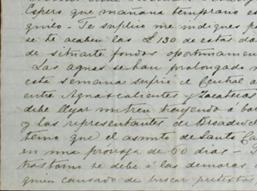 Espero que mañana temprano es
quivo. Te suplico me indiques p
se te acaben las £130 de estas da
de situarte fondos oportunamen
Las aguas se han prolongado
esta semana sufrió el Central a
entre Aguascalientes y Zacatecas
debe llegar un tren trayendo á
y los representantes de
temo que el asunto de Santa
en una próroga de 60 dias
trastorno se debe á las demoras
quien cansado de buscar pretestos